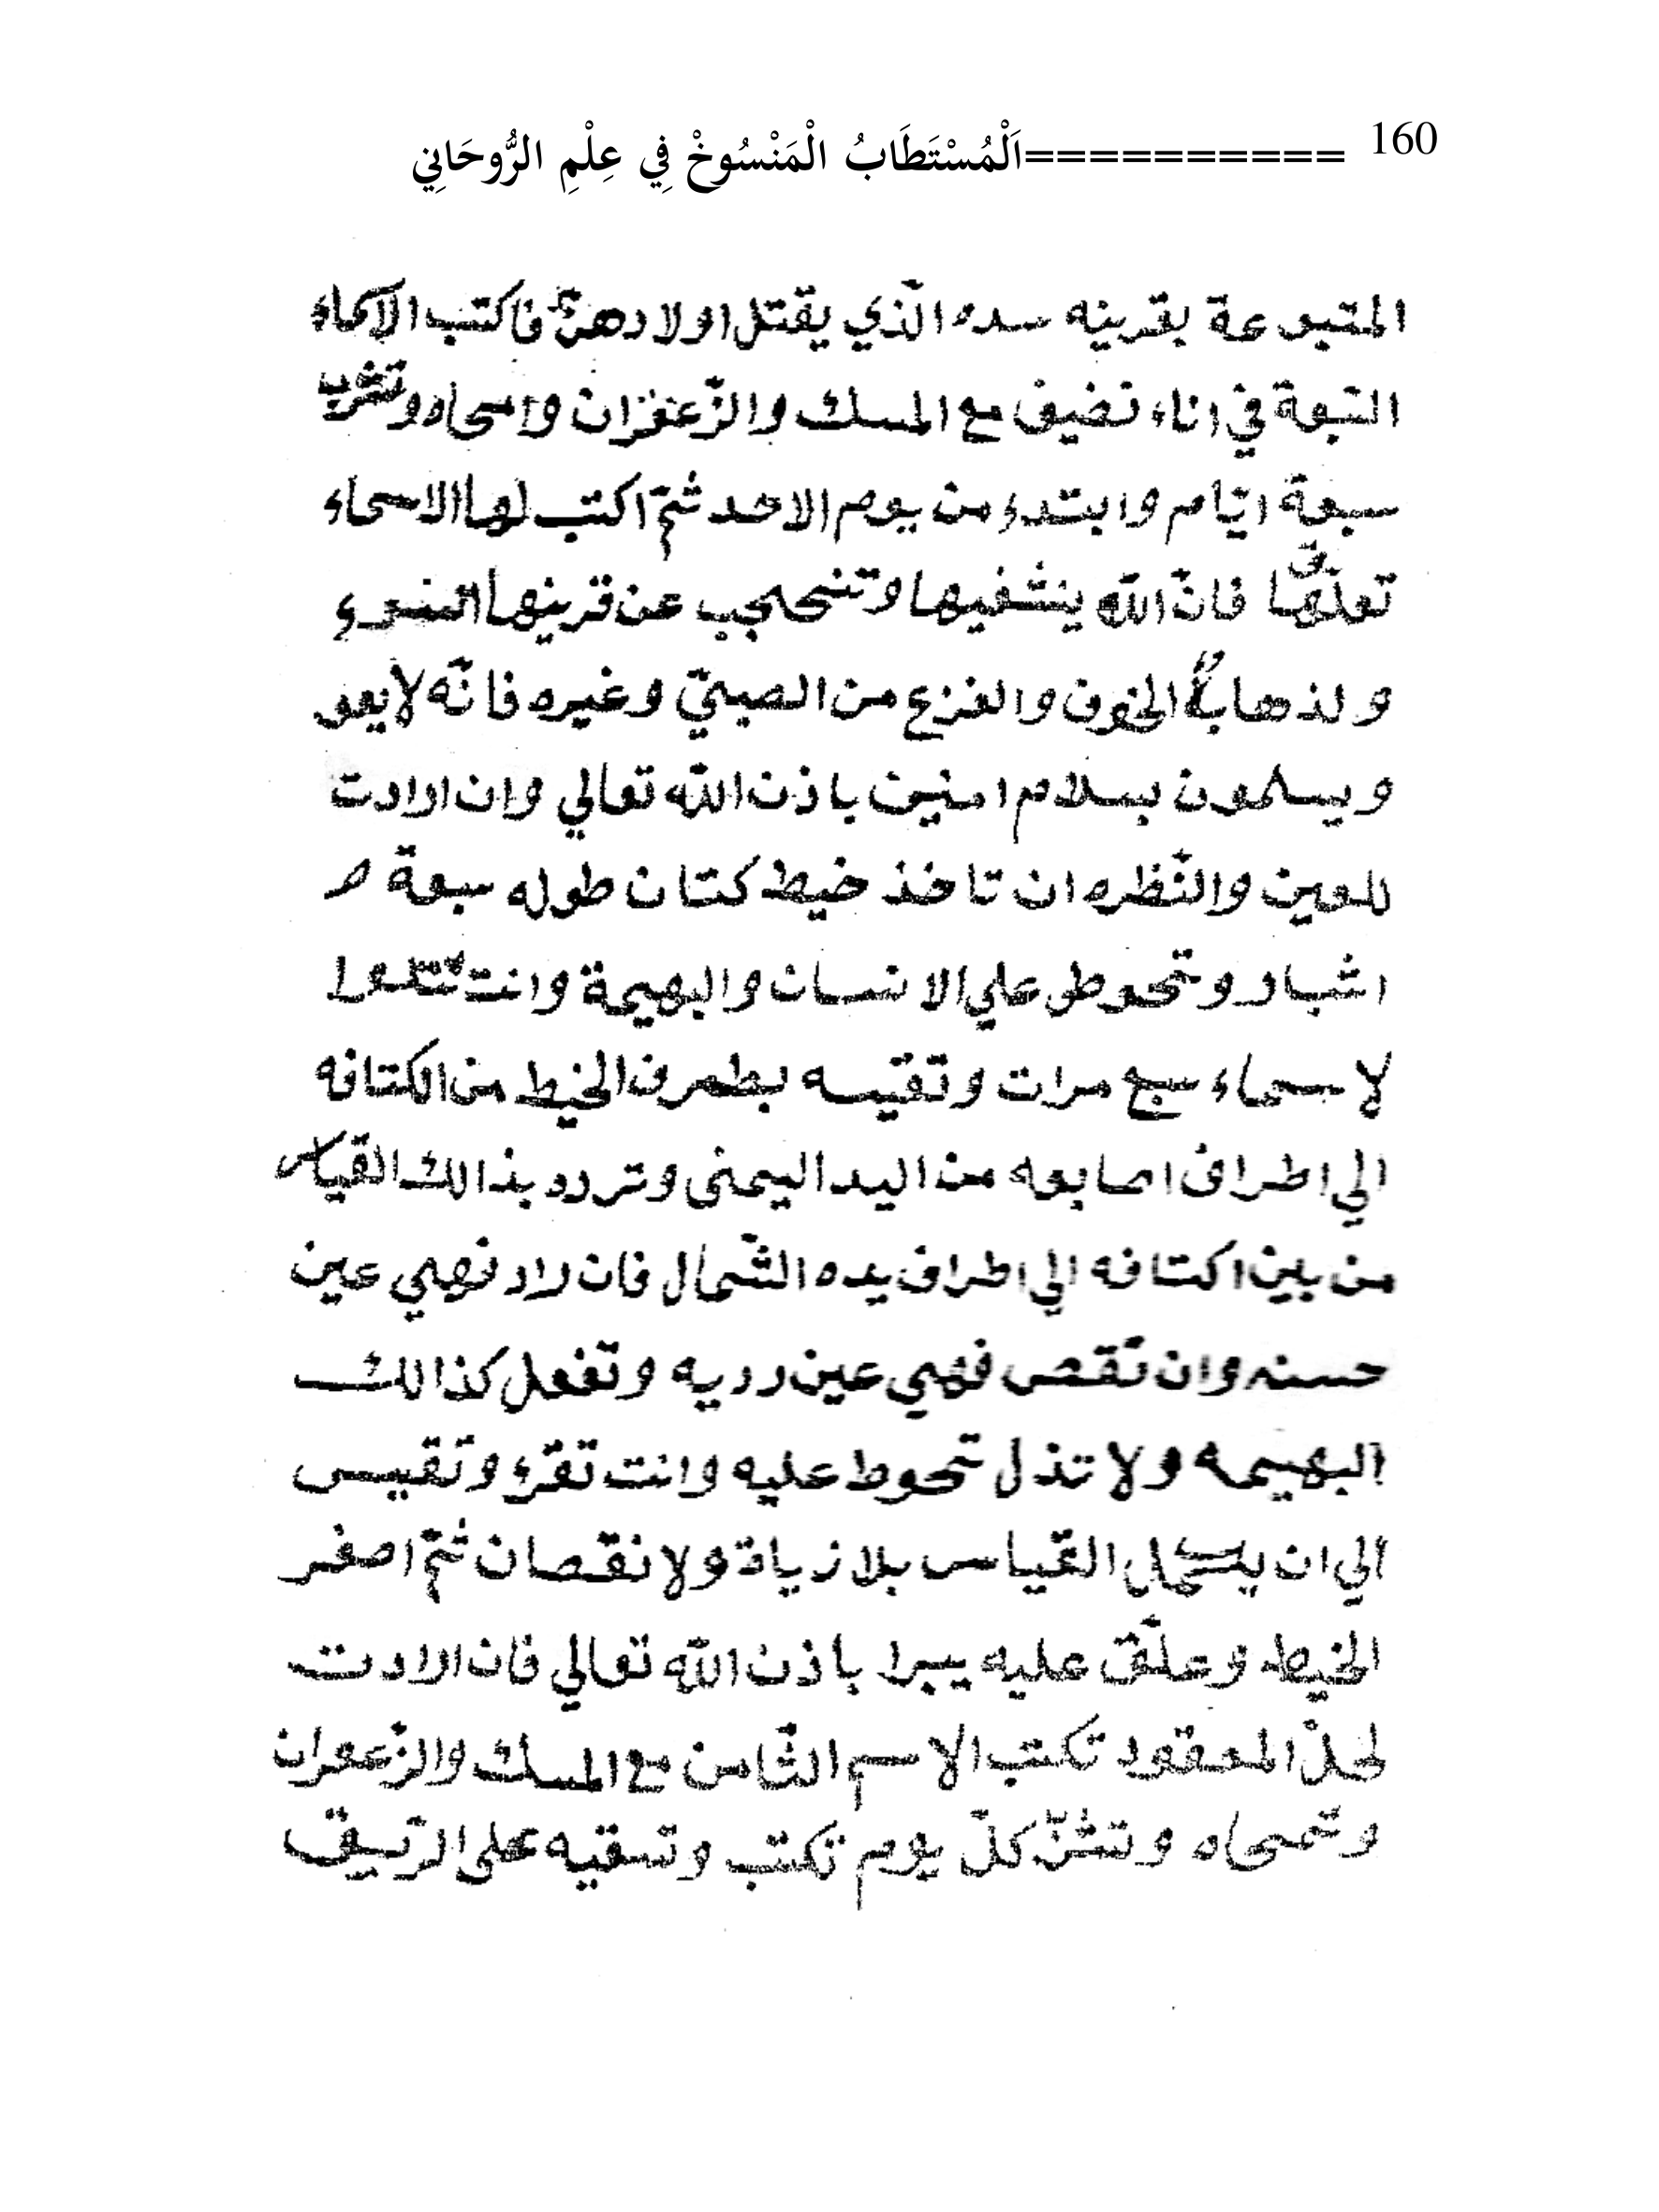 160 ==========اَلْمُسْتَطَابُ الْمَنْسُوخْ فِي عِلْمِ الرُّوحَانِي
المتبوعة بقرينه سده الّذي يقتل اولادهنّ فاكتب الاسماء
التبعة في اناء نضيف مع المسك والزّعفران وامحاه وتشرب
سبعة ايّام وابتدء من يوم الاحد ثمّ اكتب لها الاسماء
فانّ اللّه ينشفيها وتنحجب عن قرينها السوء
ولذهاب الخوف والفزع من الصبيّ وغيره فانّه لا يعو
ويسلمون بسلام امنين باذن اللّه تعالي وان ارادت
للعين والنّظره ان تاخذ خيط كتان طوله سبعة
اشبار وتحوطى علي الانسان والبهيمة وانت تتلوا
لاسماء سبع مرات وتقيسه بطرف الخيط من الكتافه
الي اطراف اصابعه من اليد اليمنى وتردد بذالك القياس
من بين اكتافه الي اطراف يده الشّمال فان زاد فهي عين
حسنه وان نقص فهي عين رديه وتفعل كذالك
البهيمه ولا تذل تحوط عليه وانت تقرء وتقيس
الي ان يكمل القياس بلا زياة ولا نقصان ثمّ اصفر
الخيط وعلّق عليه يبرا باذن اللّه تعالي فان ارادت
لحلّ المعقود تكتب الاسم الثّامن مع المسك والزّعفران
وتمحاه كلّ يوم تكتب وتسقيه على الرّيق